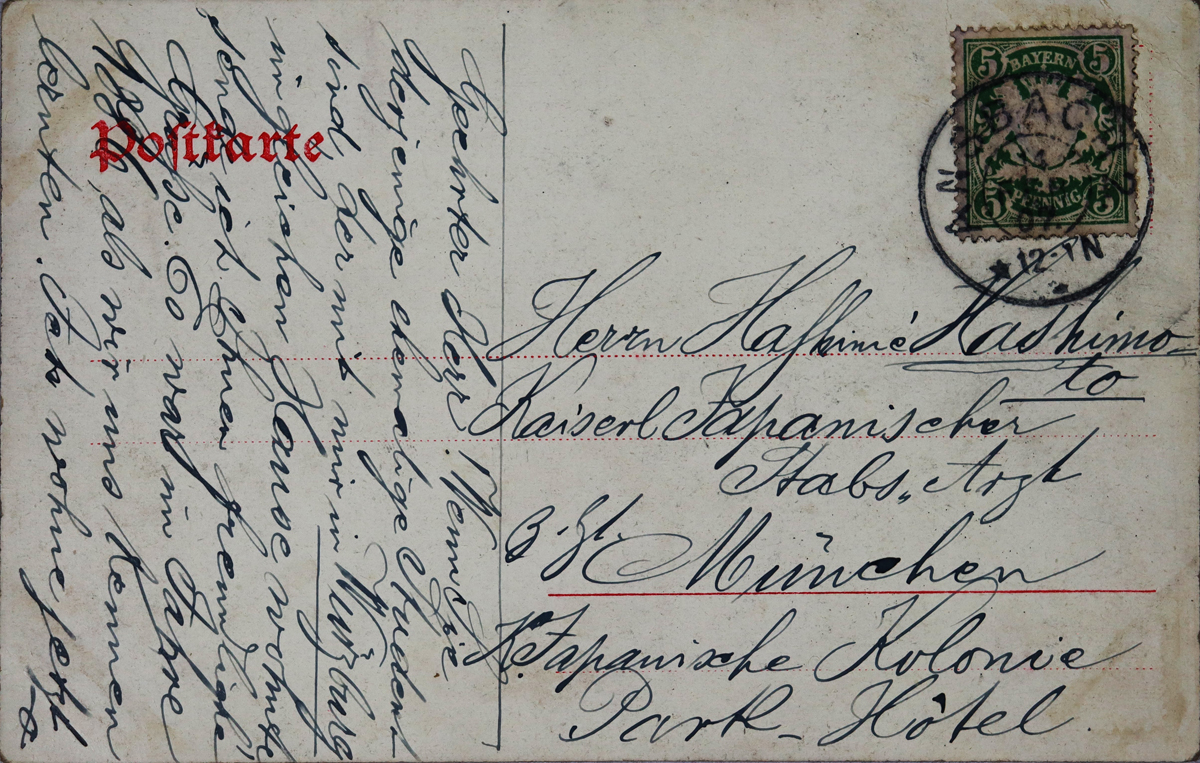 Postkarte
Geehrter Herr! Wenn Sie
derjenige ehemalige Student
sind, der mit mir in Würzburg
im gleichen Hause wohnte
send ich Ihnen freundliche
Grüße. Es war im Jahre
als wir uns kennen
lernten. Ich wohne jetzt
5 BAYERN 5
5 PFENNIG 5
ANSBACH
12-1N
Herrn Hashimo-
to
Kaiserl Japanischer
Stabs-Arzt
z. Zt. München
K. Japanische Kolonie
Park-Hôtel.